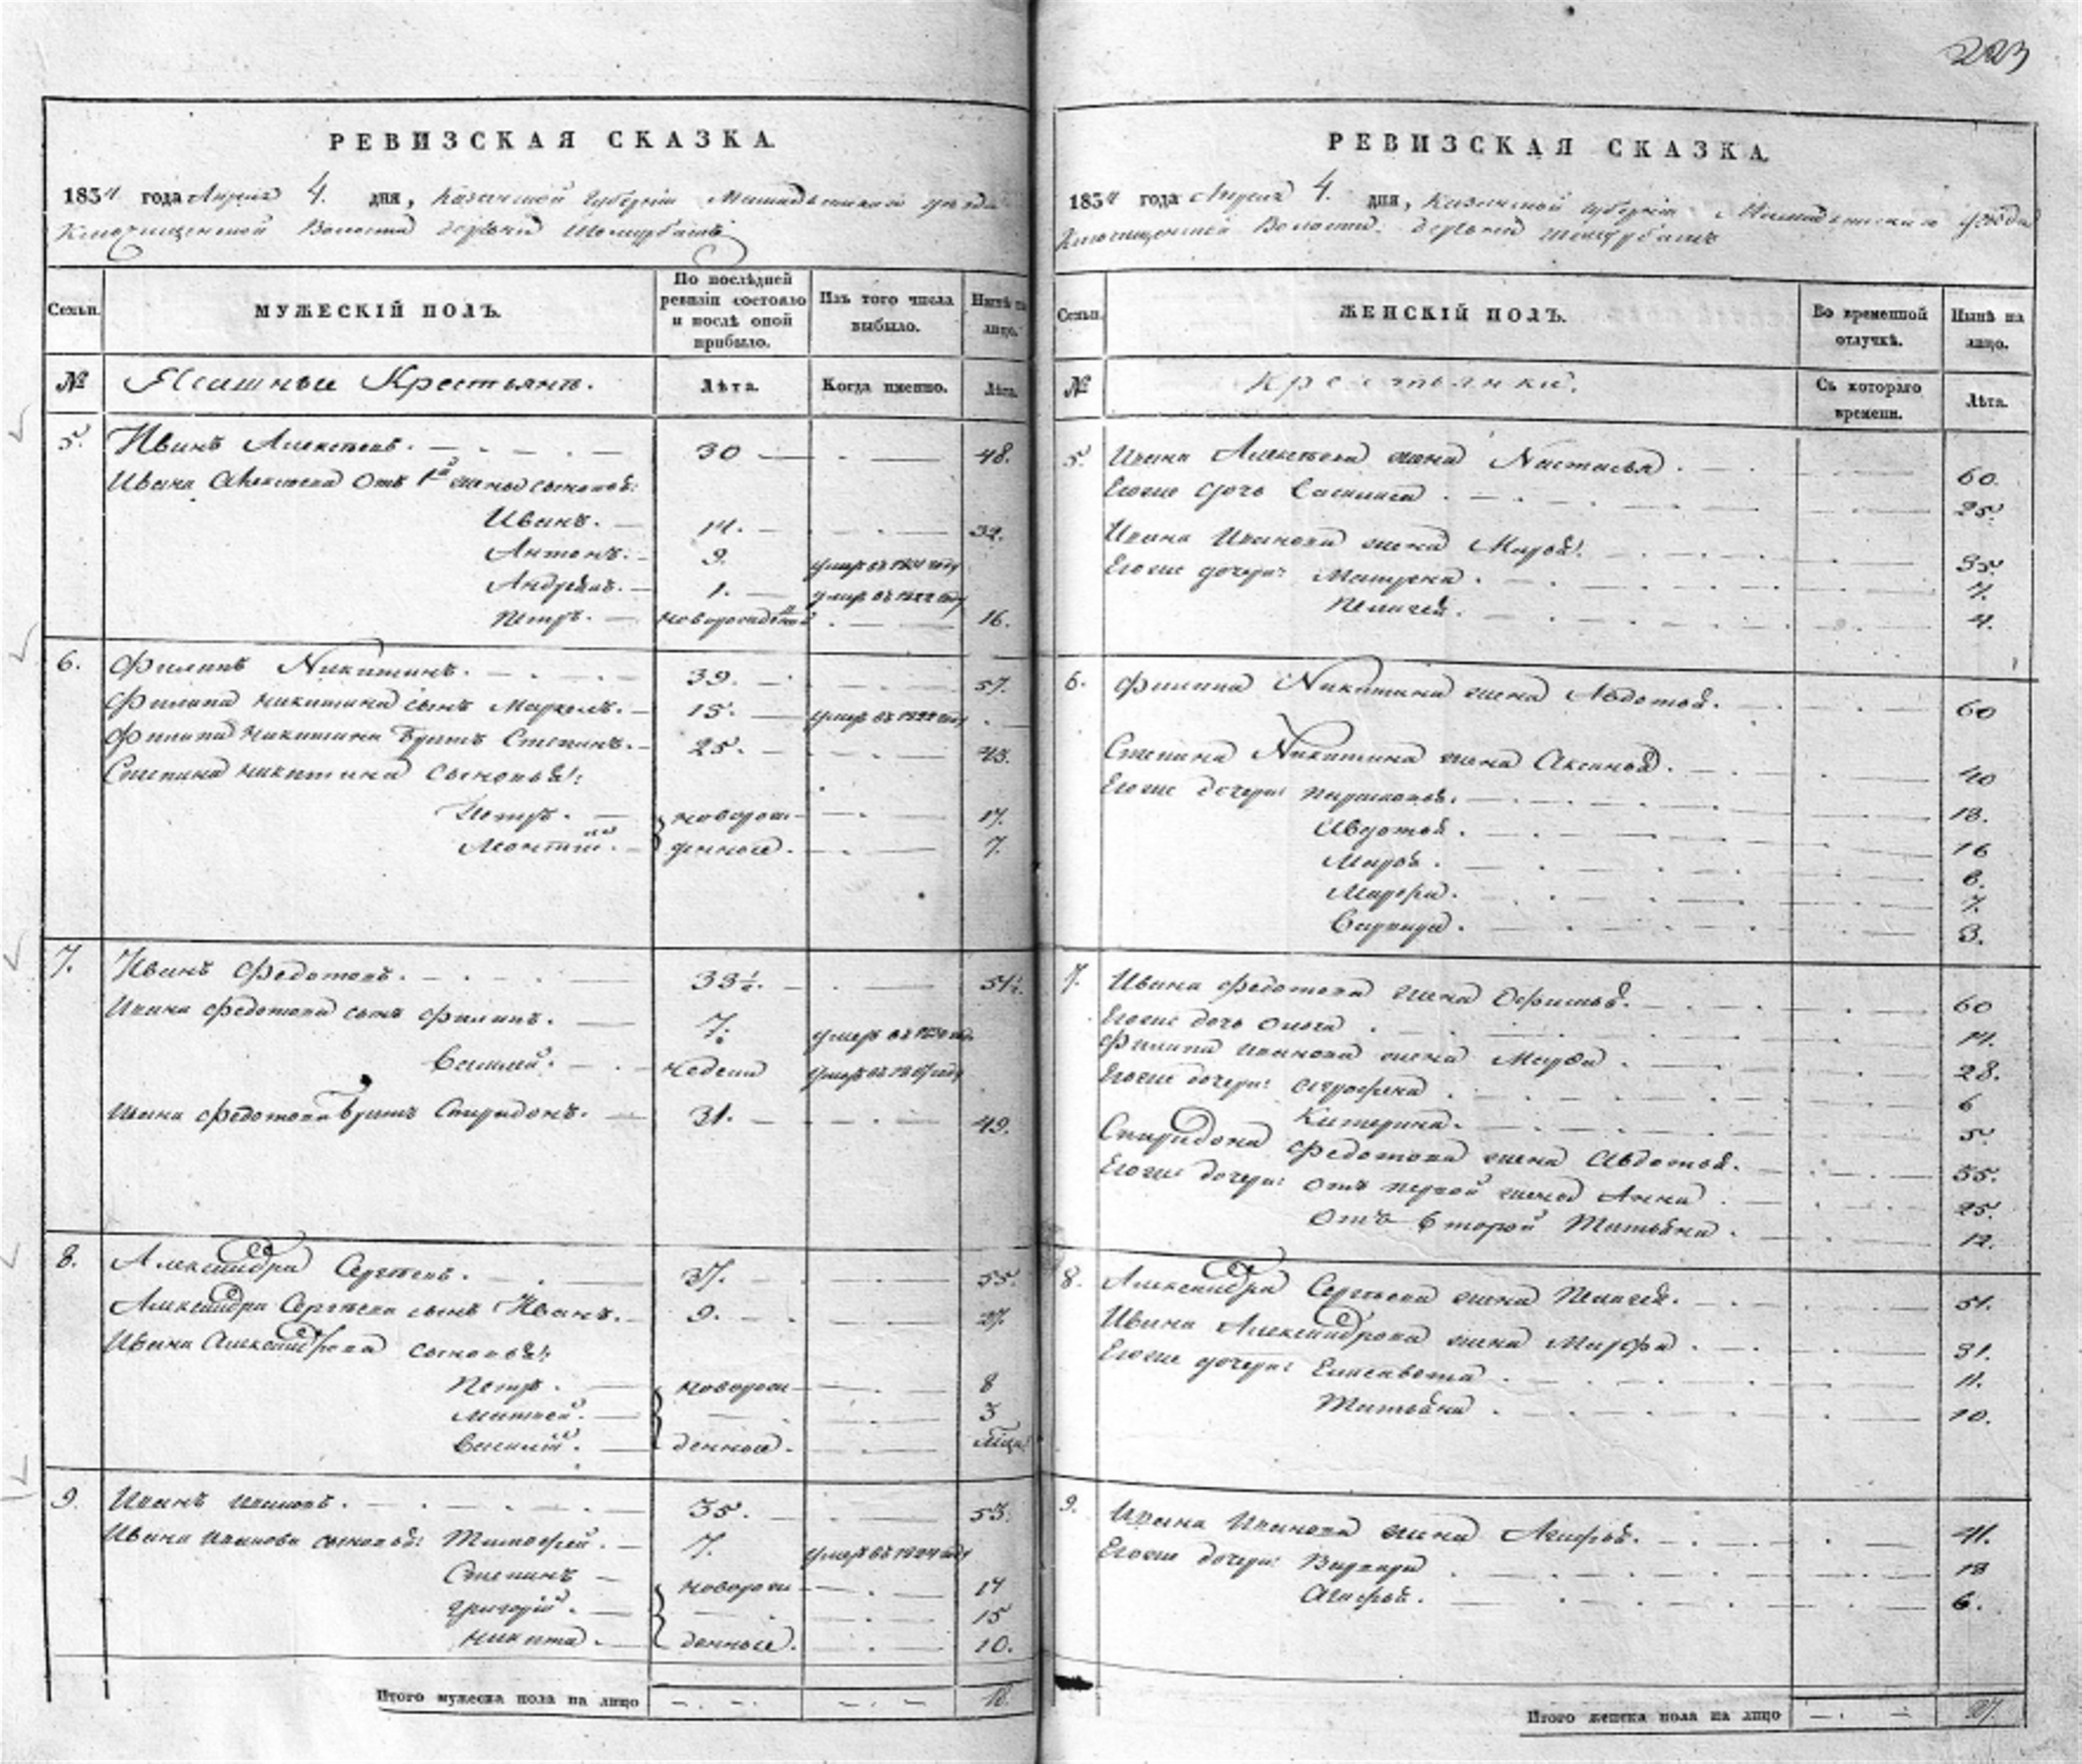 223
РЕВИЗСКАЯ СКАЗКА
1834 года Апреля 4. дня, Казанской Губернiи Мамадышской уезда
Ключищенской Волости деревни Шемурбашъ
Семьи.
МУЖЕСКІЙ ПОЛЪ.
По послѣдней ревизіи состояло и послѣ оной прибыло.
Изъ того числа выбыло.
Нынѣ на лицо.
№ Ясашные Крестьяне.
Лѣта.
Когда именно.
Лѣта.
5. Иванъ Алексеевъ. 30 48.
Ивана Алексеева отъ 1й жены сыновья:
Иванъ. 14. 32.
Антонъ. 3. умеръ въ году
Андреянъ. 1. умеръ въ году
Петръ. новорожденный 16.
6. Филипъ Никитинъ. 39. 57.
Филипа Никитина сынъ 15. умеръ въ году
Филипа Никитина братъ Степанъ. 25. 43.
Степана Никитина сыновья:
Петръ. новорож- 17.
Леонтий. денные. 7.
7. Иванъ Федотовъ. 33½. 51½.
Ивана Федотова сынъ Филипъ. 7. умеръ въ году
Василий. недели умеръ въ году
Ивана Федотова братъ Спиридонъ. 31. 49.
8. Александра Сергеевъ. 37. 55.
Александра Сергеева сынъ Иванъ. 9. 27.
Ивана Александрова сыновья:
Петръ. новорож- 8
Матвей. 3
Василий. денные.
9. Иванъ Ивановъ. 35. 53.
Ивана Иванова сыновья: Тимофей. 7. умеръ въ году
Степанъ новорож- 17
Григорій. 15
Никита. денные. 10.
Итого мужеска пола на лицо 18.
РЕВИЗСКАЯ СКАЗКА
1834 года Апреля 4. дня, Казанской губернiи Мамадышскаго уезда
Ключищенской Волости деревни Шемурбашъ
Семьи.
ЖЕНСКІЙ ПОЛЪ.
Во временной отлучкѣ.
Нынѣ на лицо.
№ Крестьянки.
Съ котораго времени.
Лѣта.
5. Ивана Алексеева жена Настасья. 60.
Егоже дочь Василиса. 25.
Ивана Иванова жена Марья. 35.
Егоже дочери: Матрена. 7.
Пелагея. 4.
6. Филипа Никитина жена Авдотья. 60
Степана Никитина жена Аксинья. 40
Егоже дочери: 18.
Авдотья. 16
Марья. 8.
Марфа. 7.
Варвара. 3.
7. Ивана Федотова жена Офимья. 60
Егоже дочь Ольга. 14.
Филипа Иванова жена Марфа. 28.
Егоже дочери: Аграфена. 6
Катерина. 5.
Спиридона Федотова жена Авдотья. 55.
Егоже дочери: отъ первой жены Анна. 25.
отъ второй Татьяна. 12.
8. Александра Сергеева жена Пелагея. 51.
Ивана Александрова жена Марфа. 31.
Егоже дочери: Елисавета. 11.
Татьяна. 10.
9. Ивана Иванова жена Агафья. 41.
Егоже дочери: Варвара 18
Агафья. 6.
Итого женска пола на лицо 27.